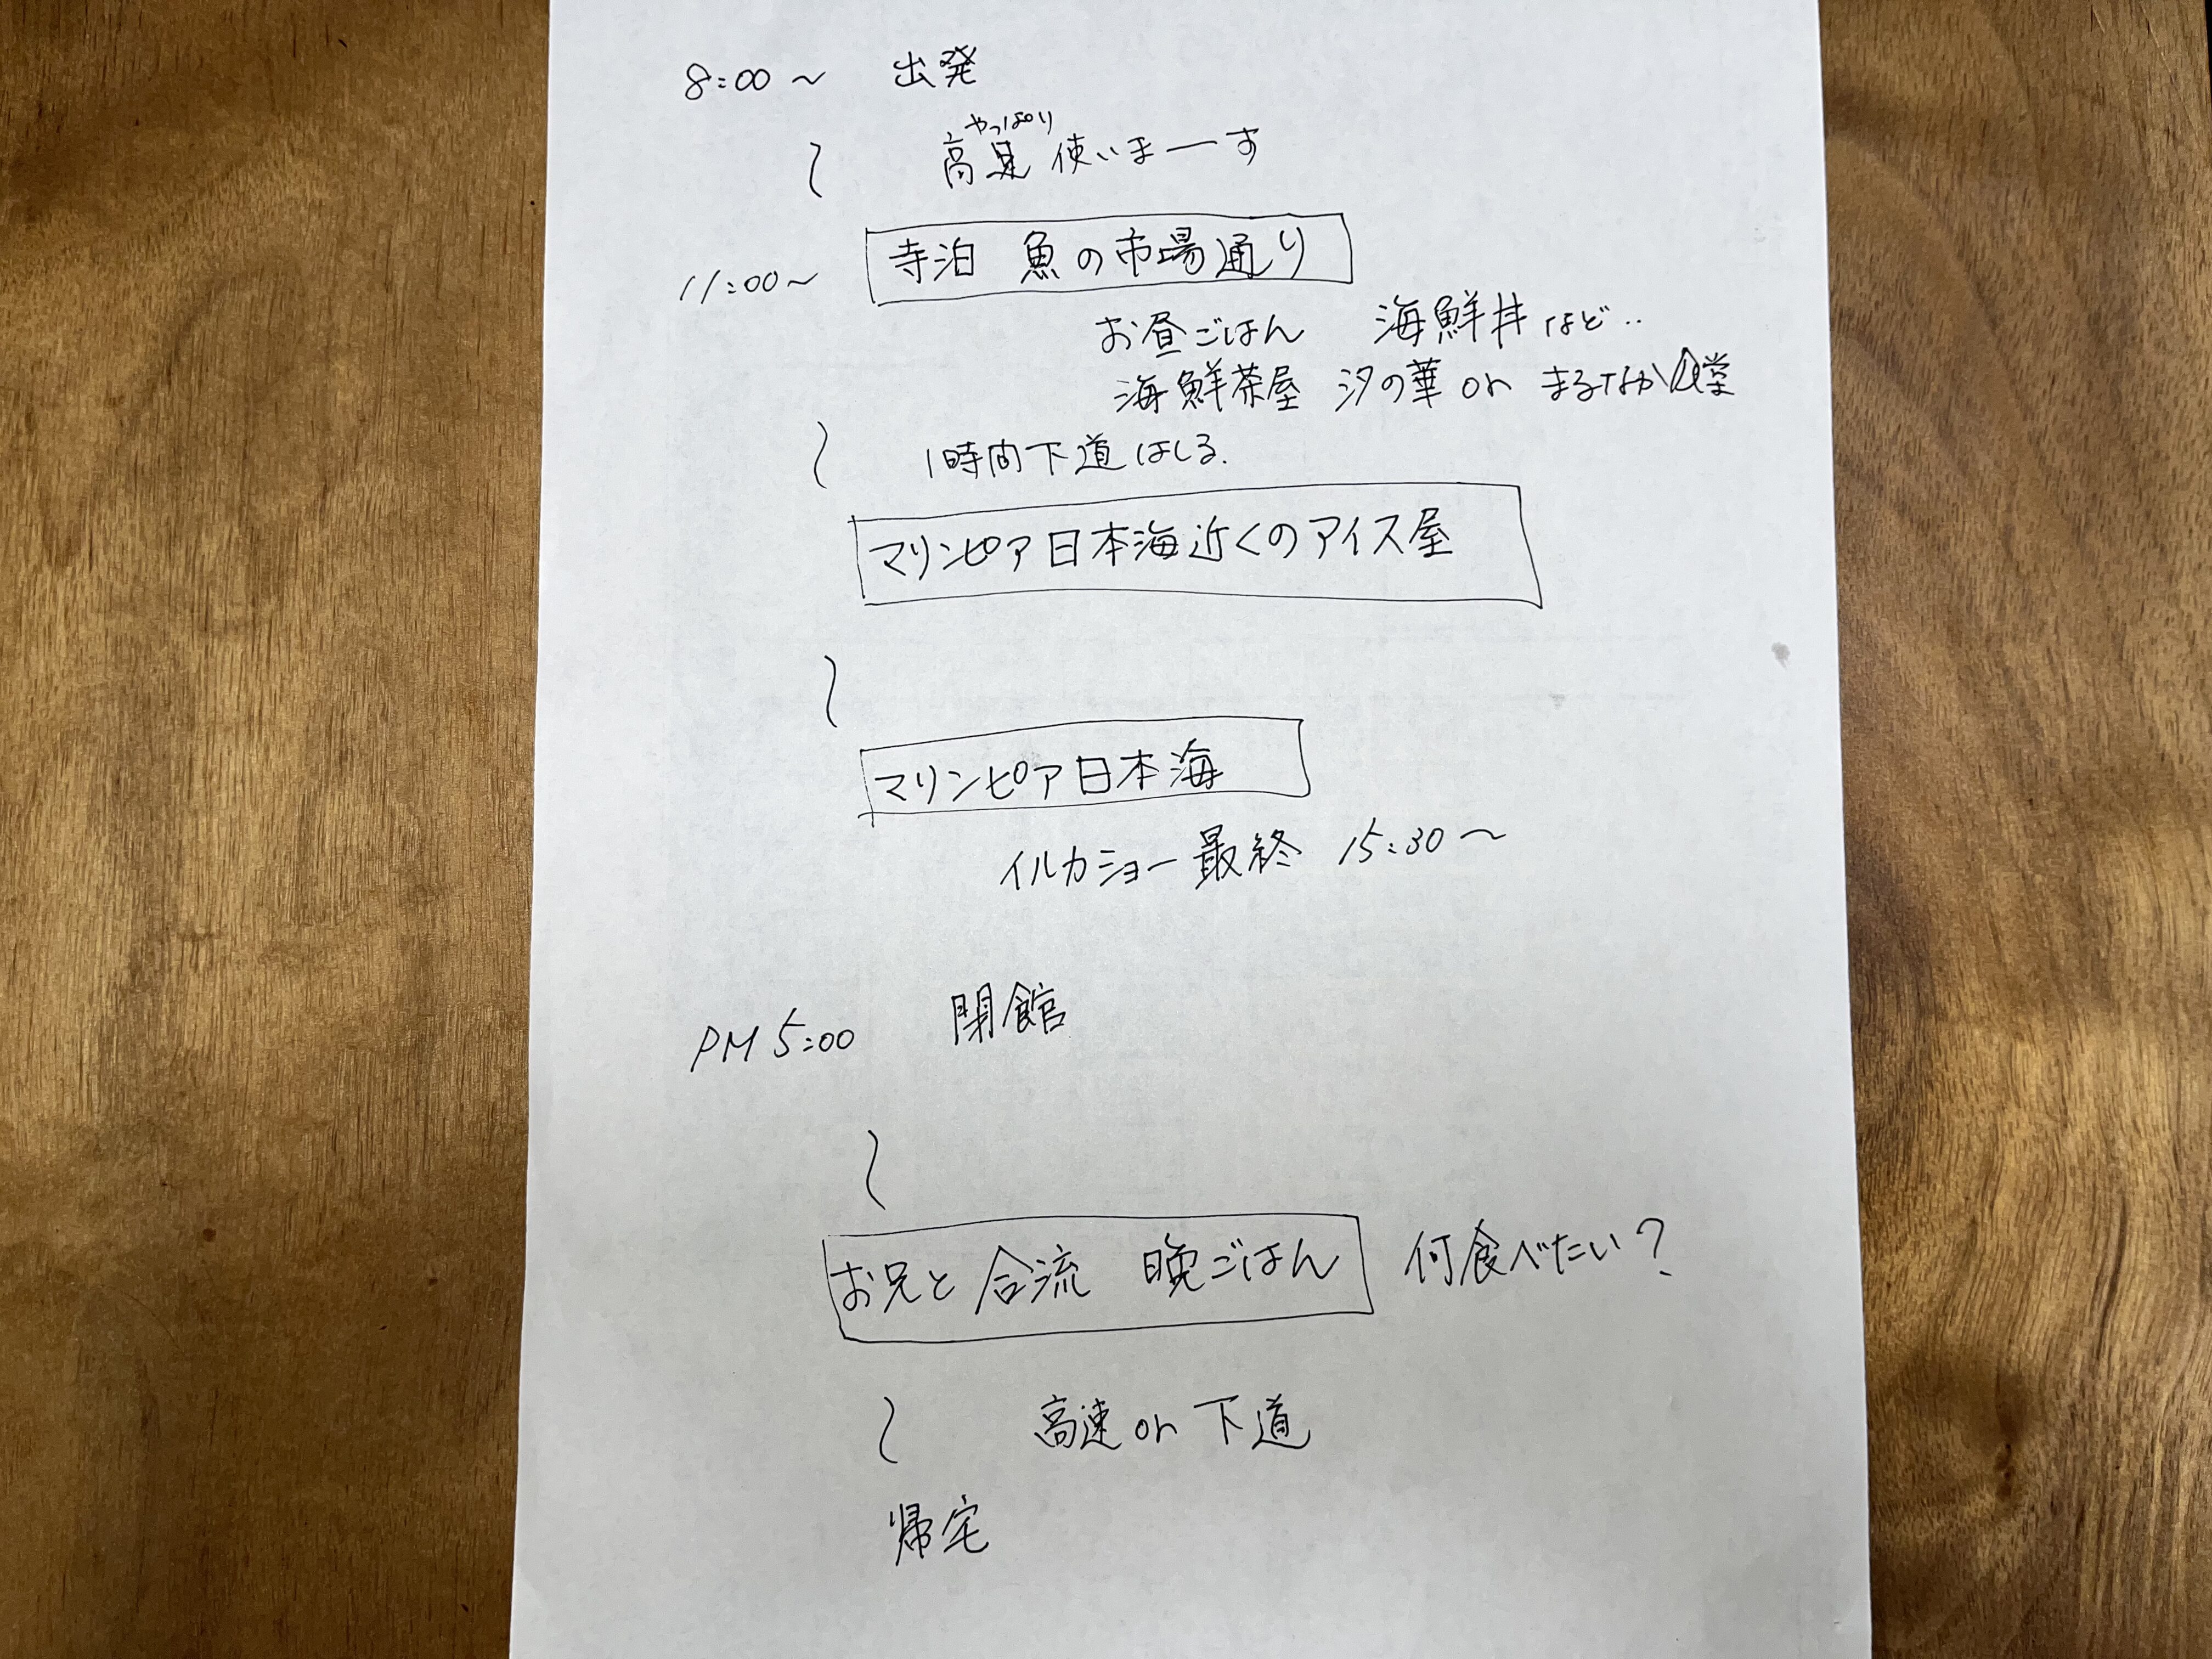 8:00〜 出発
やっぱり
高速 使いまーす
11:00〜 寺泊 魚の市場通り
お昼ごはん 海鮮丼など‥
海鮮茶屋 汐の華 or まるなか食堂
1時間下道はしる.
マリンピア日本海近くのアイス屋
マリンピア日本海
イルカショー最終 15:30〜
PM 5:00 閉館
お兄と合流 晩ごはん 何食べたい?
高速 or 下道
帰宅